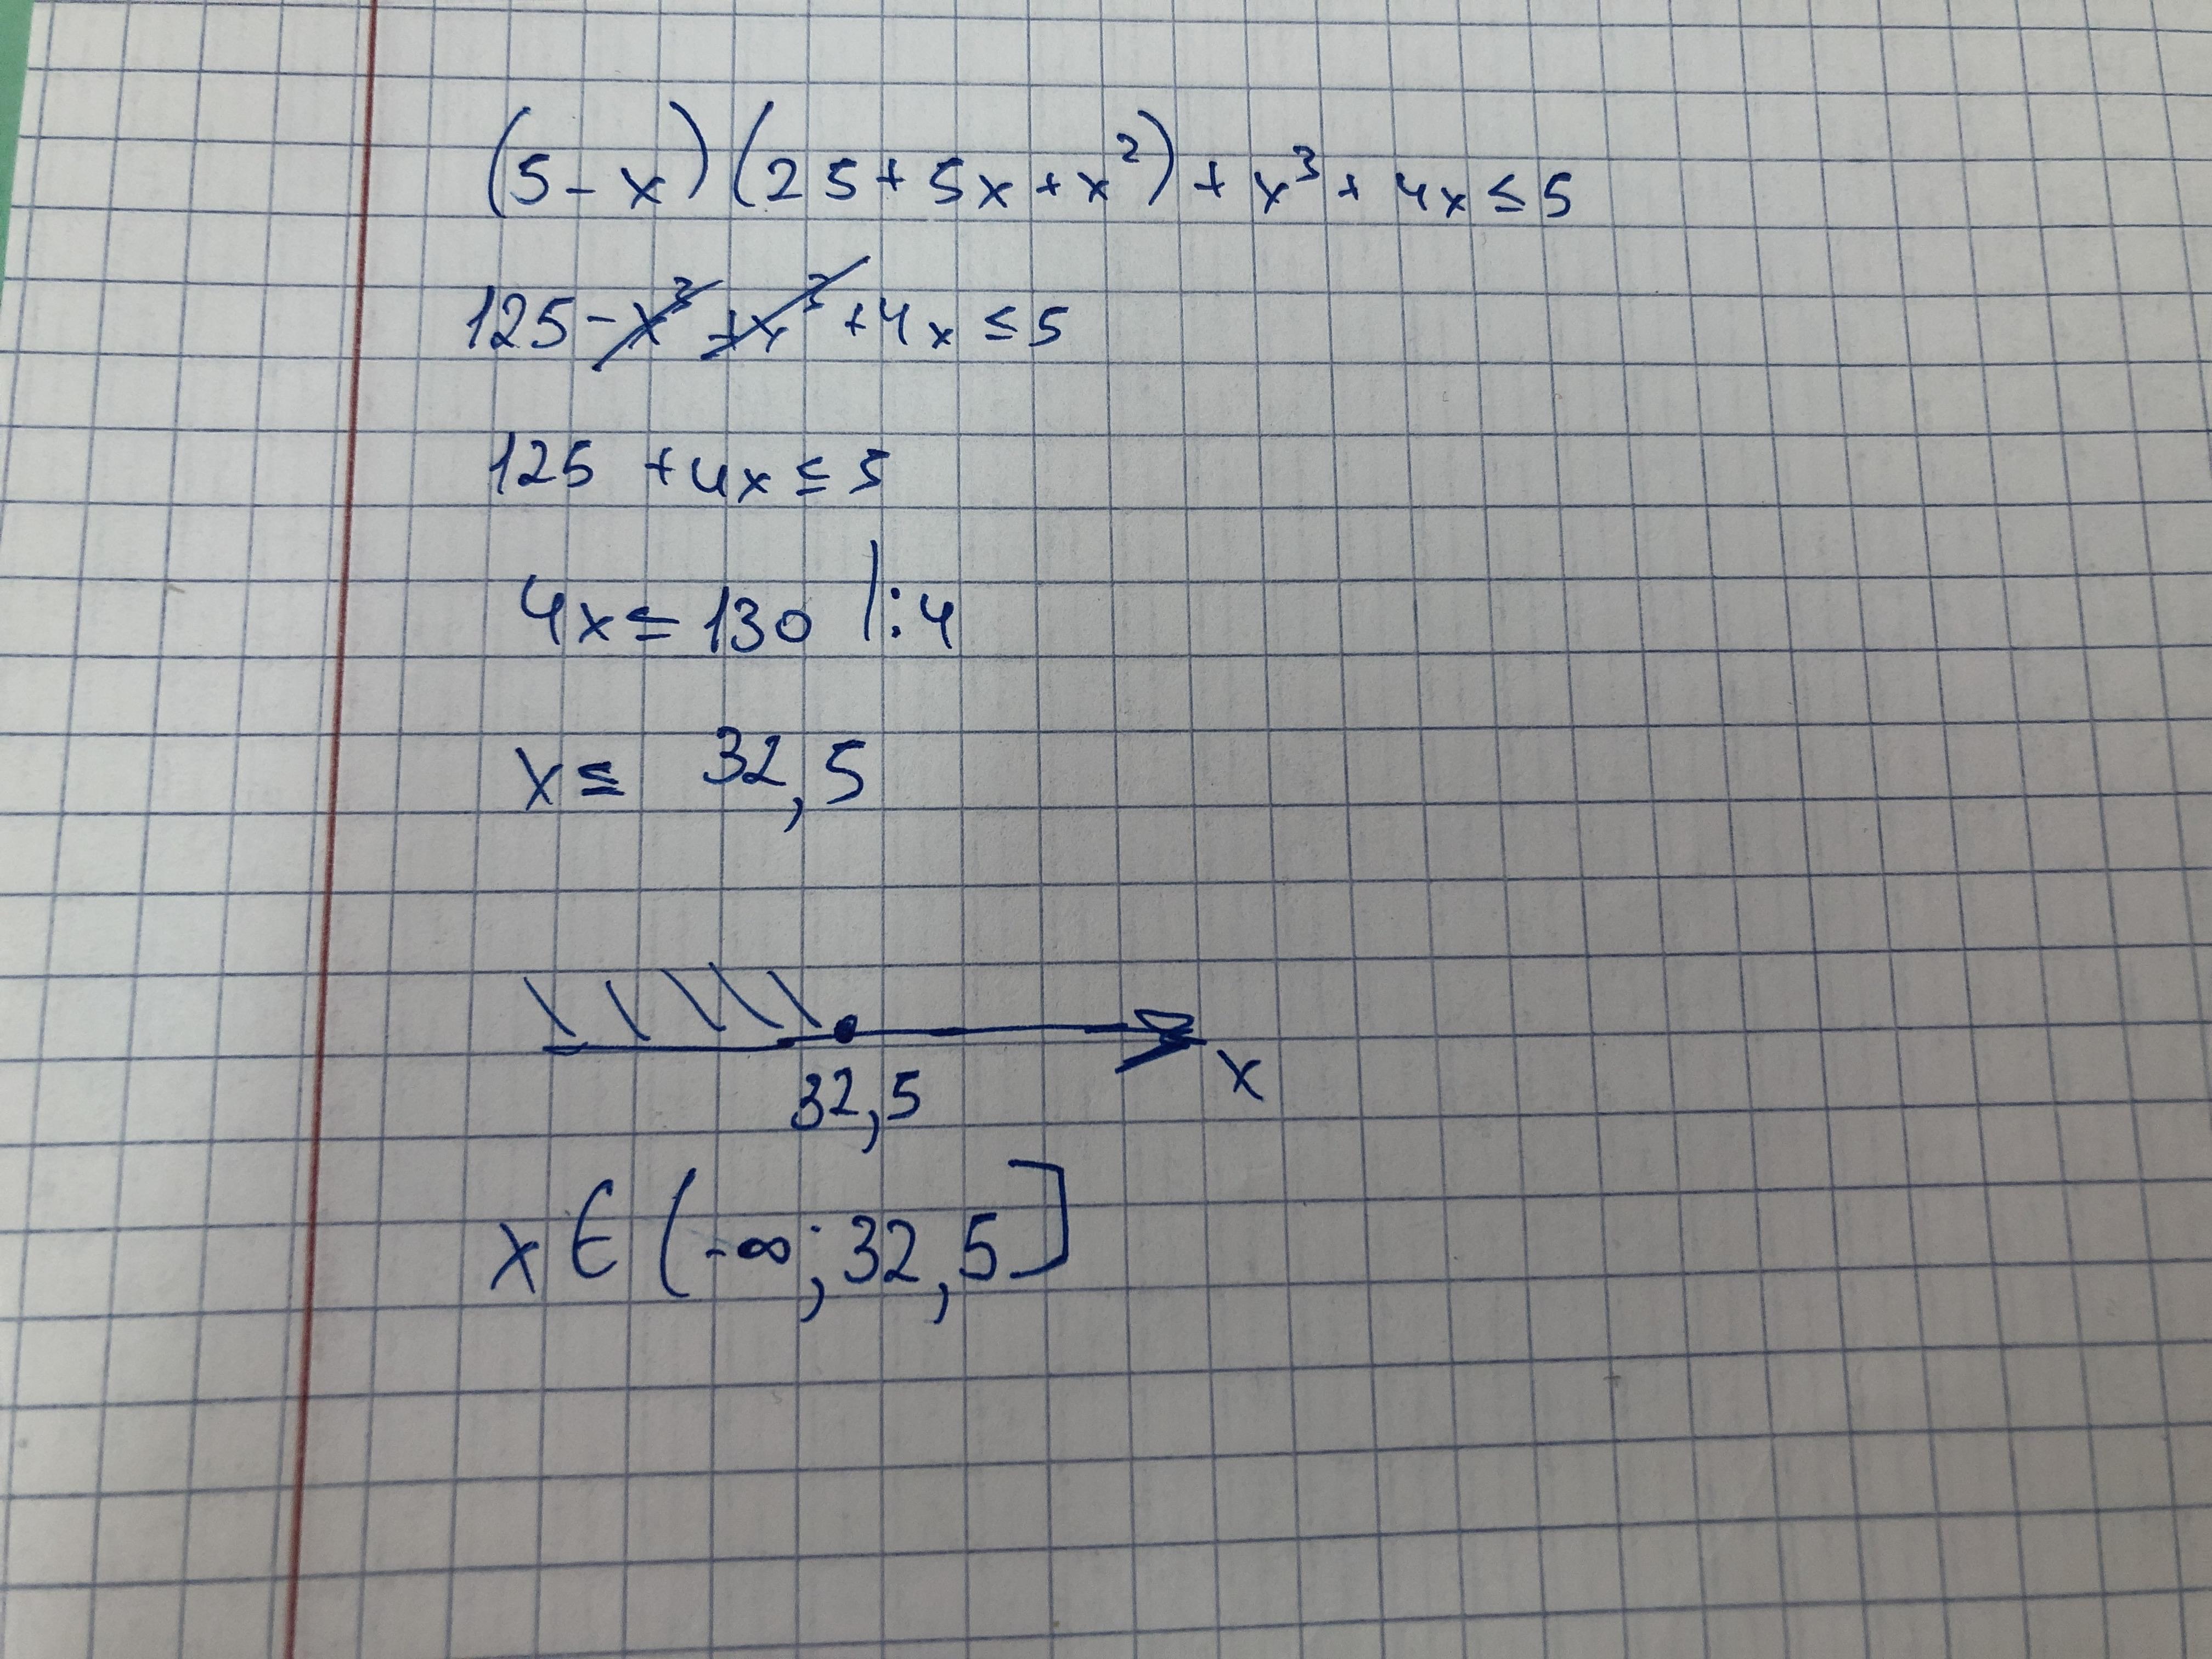 (5-x)(25+5x+x²)+x³+4x≤5
125-x³+x³+4x≤5
125+4x≤5
4x≤130 |:4
x≤ 32,5
32,5
x
x∈(-∞;32,5]